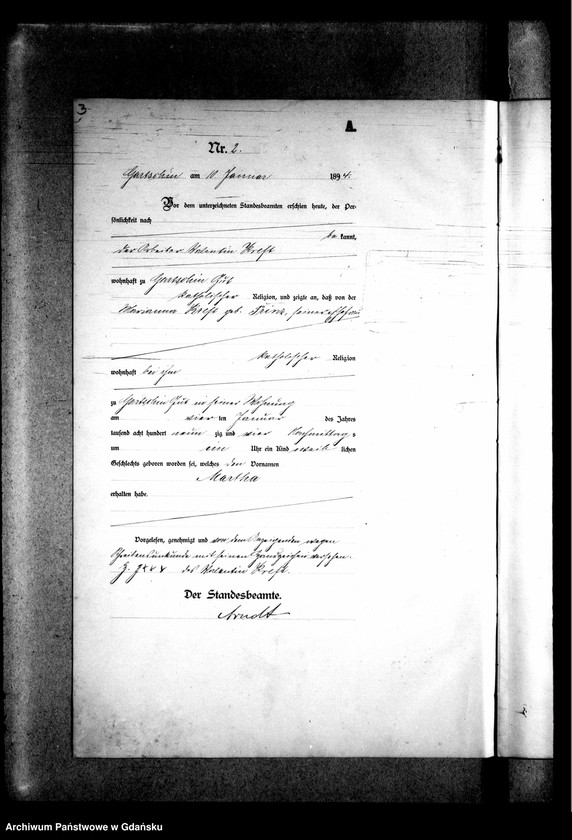 3
A.
Nr. 2.
Gartschin am 10 Januar 1894.
Vor dem unterzeichneten Standesbeamten erschien heute, der Per-
sönlichkeit nach
be kannt,
der Arbeiter Valentin Kreft
wohnhaft zu Gartschin Gut
katholischer Religion, und zeigte an, daß von der
Marianna Kreft geb. seiner Ehefrau
katholischer Religion
wohnhaft bei ihm
zu Gartschin Gut in seiner Wohnung
am vier ten Januar des Jahres
tausend acht hundert neun zig und vier Nachmittag s
um ein Uhr ein Kind weib lichen
Geschlechts geboren worden sei, welches den Vornamen
Martha
erhalten habe.
Vorgelesen, genehmigt und von dem Anzeigenden wegen
Schreibensunkunde mit seinem Handzeichen versehen.
H. Z. x x x des Valentin Kreft.
Der Standesbeamte.
Arndt
Archiwum Państwowe w Gdańsku